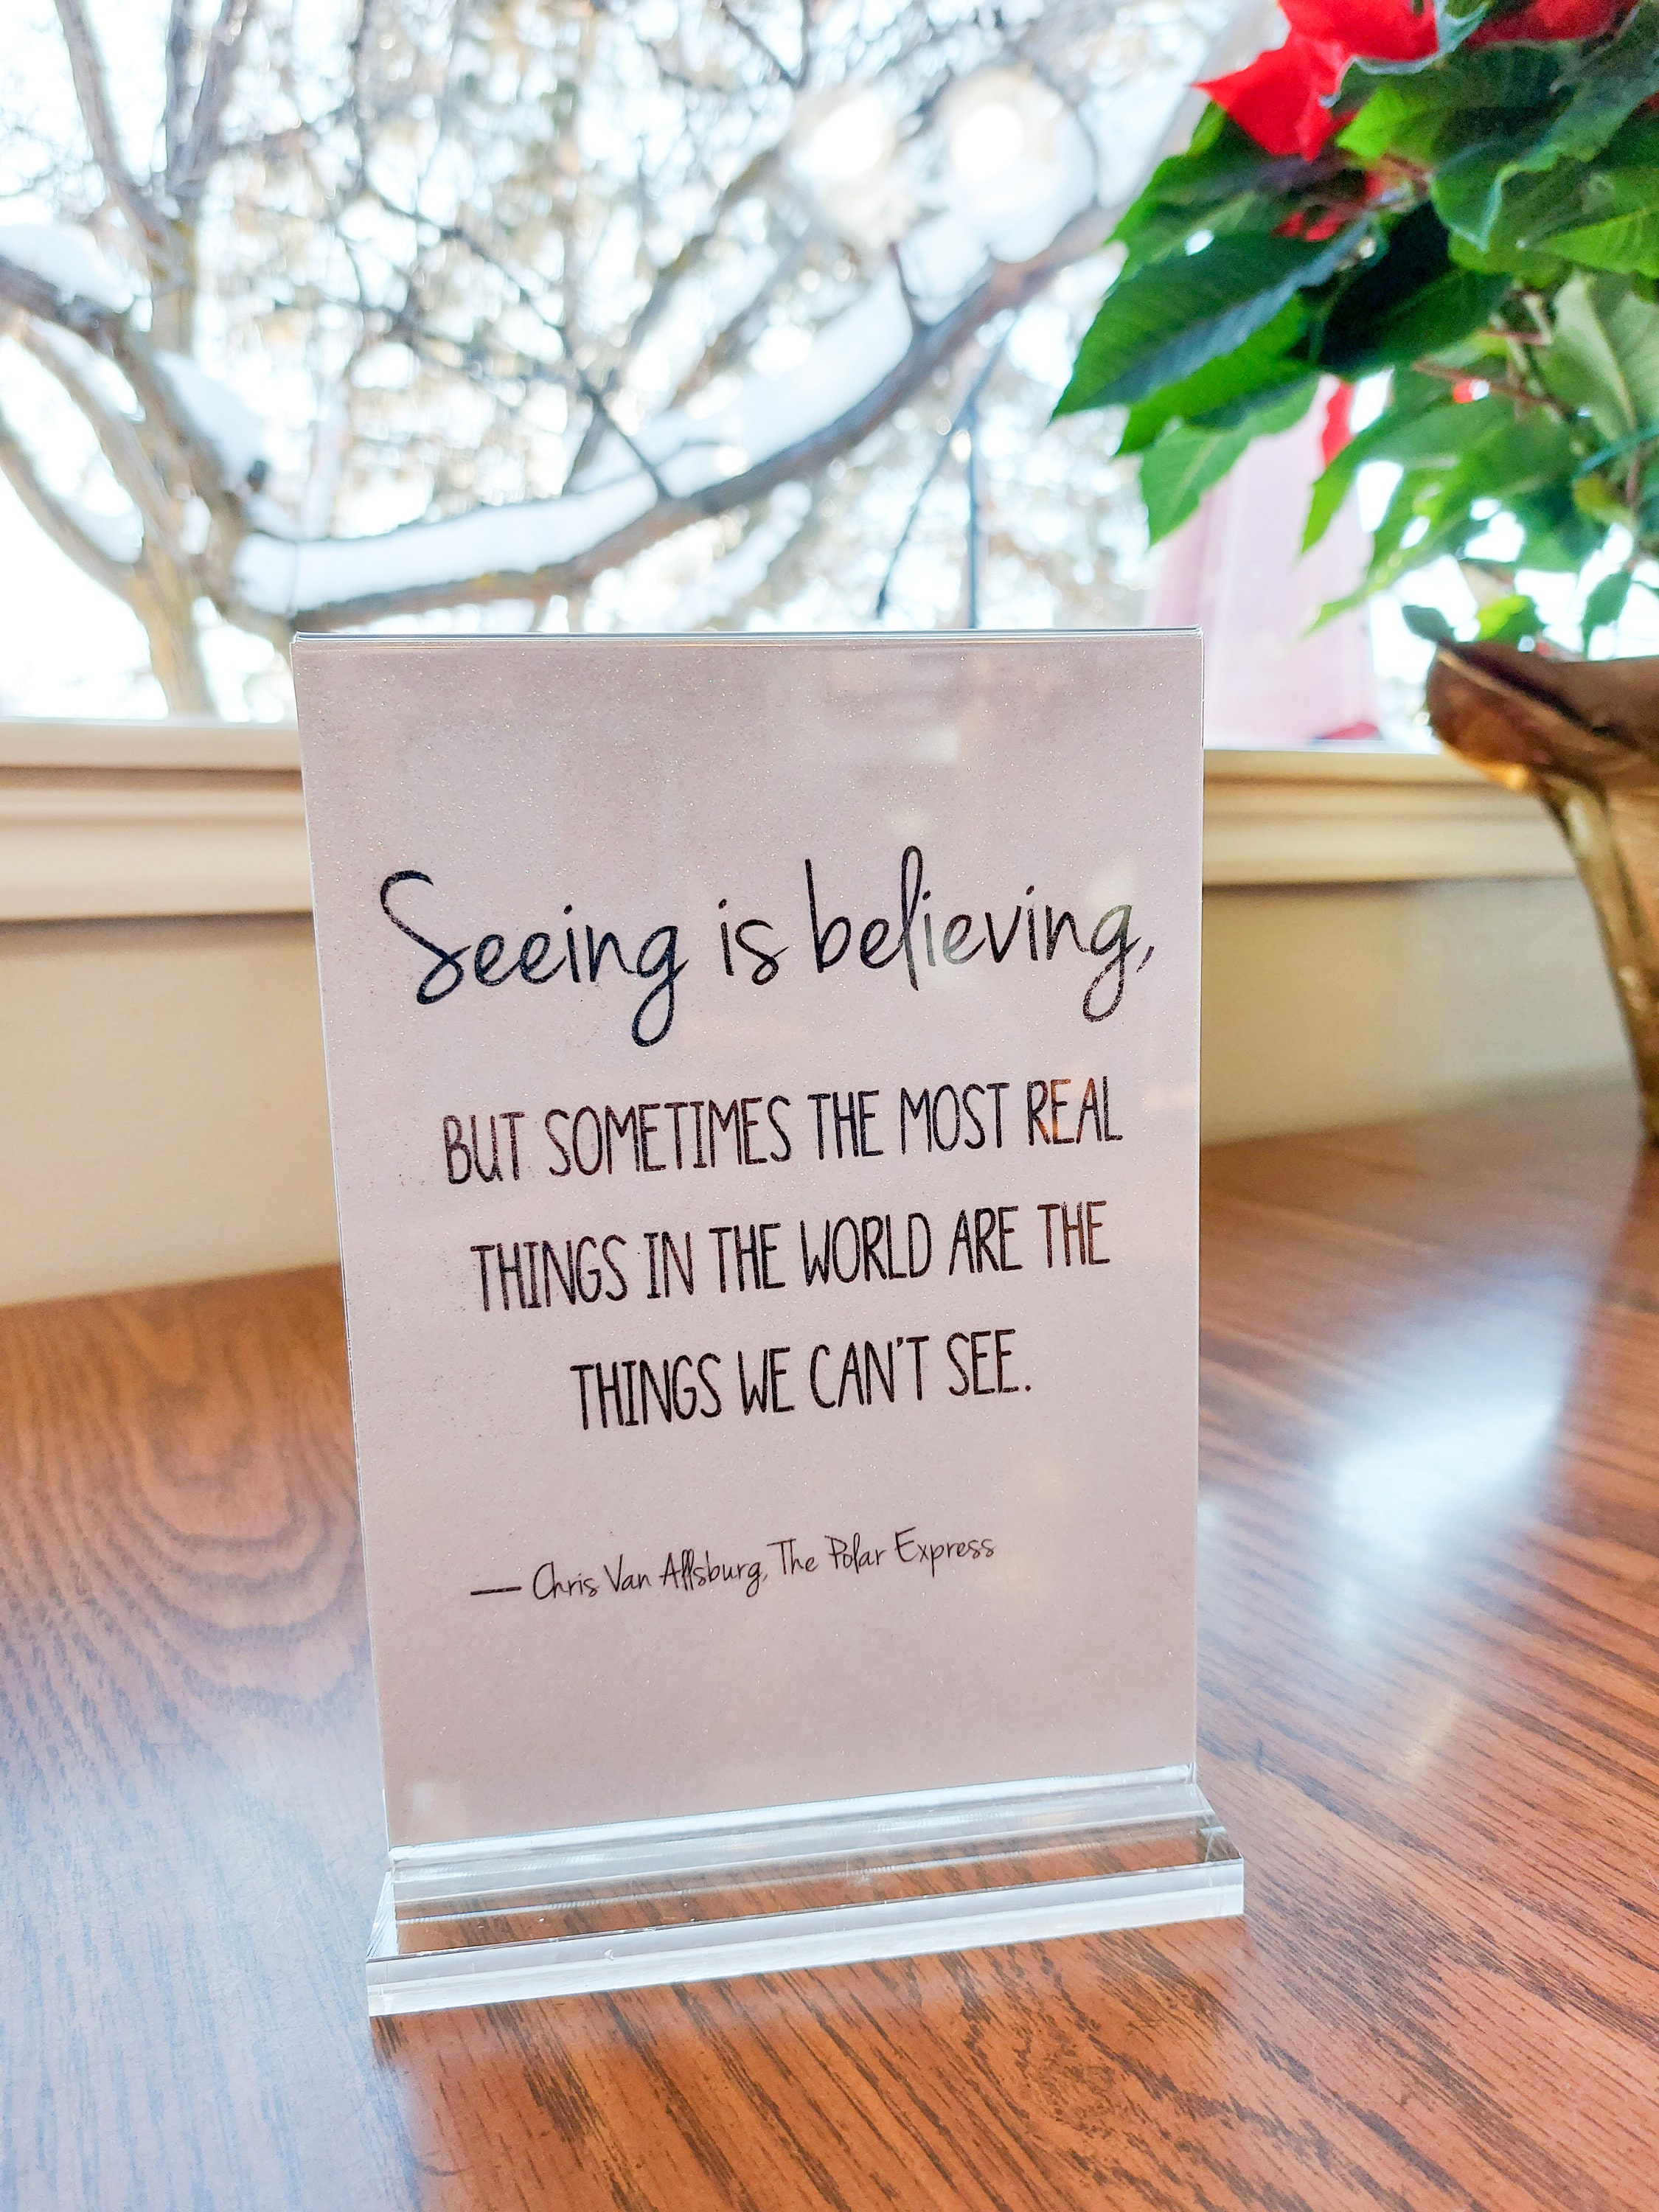 Seeing is believing,
BUT SOMETIMES THE MOST REAL
THINGS IN THE WORLD ARE THE
THINGS WE CAN'T SEE.
— Chris Van Allsburg, The Polar Express